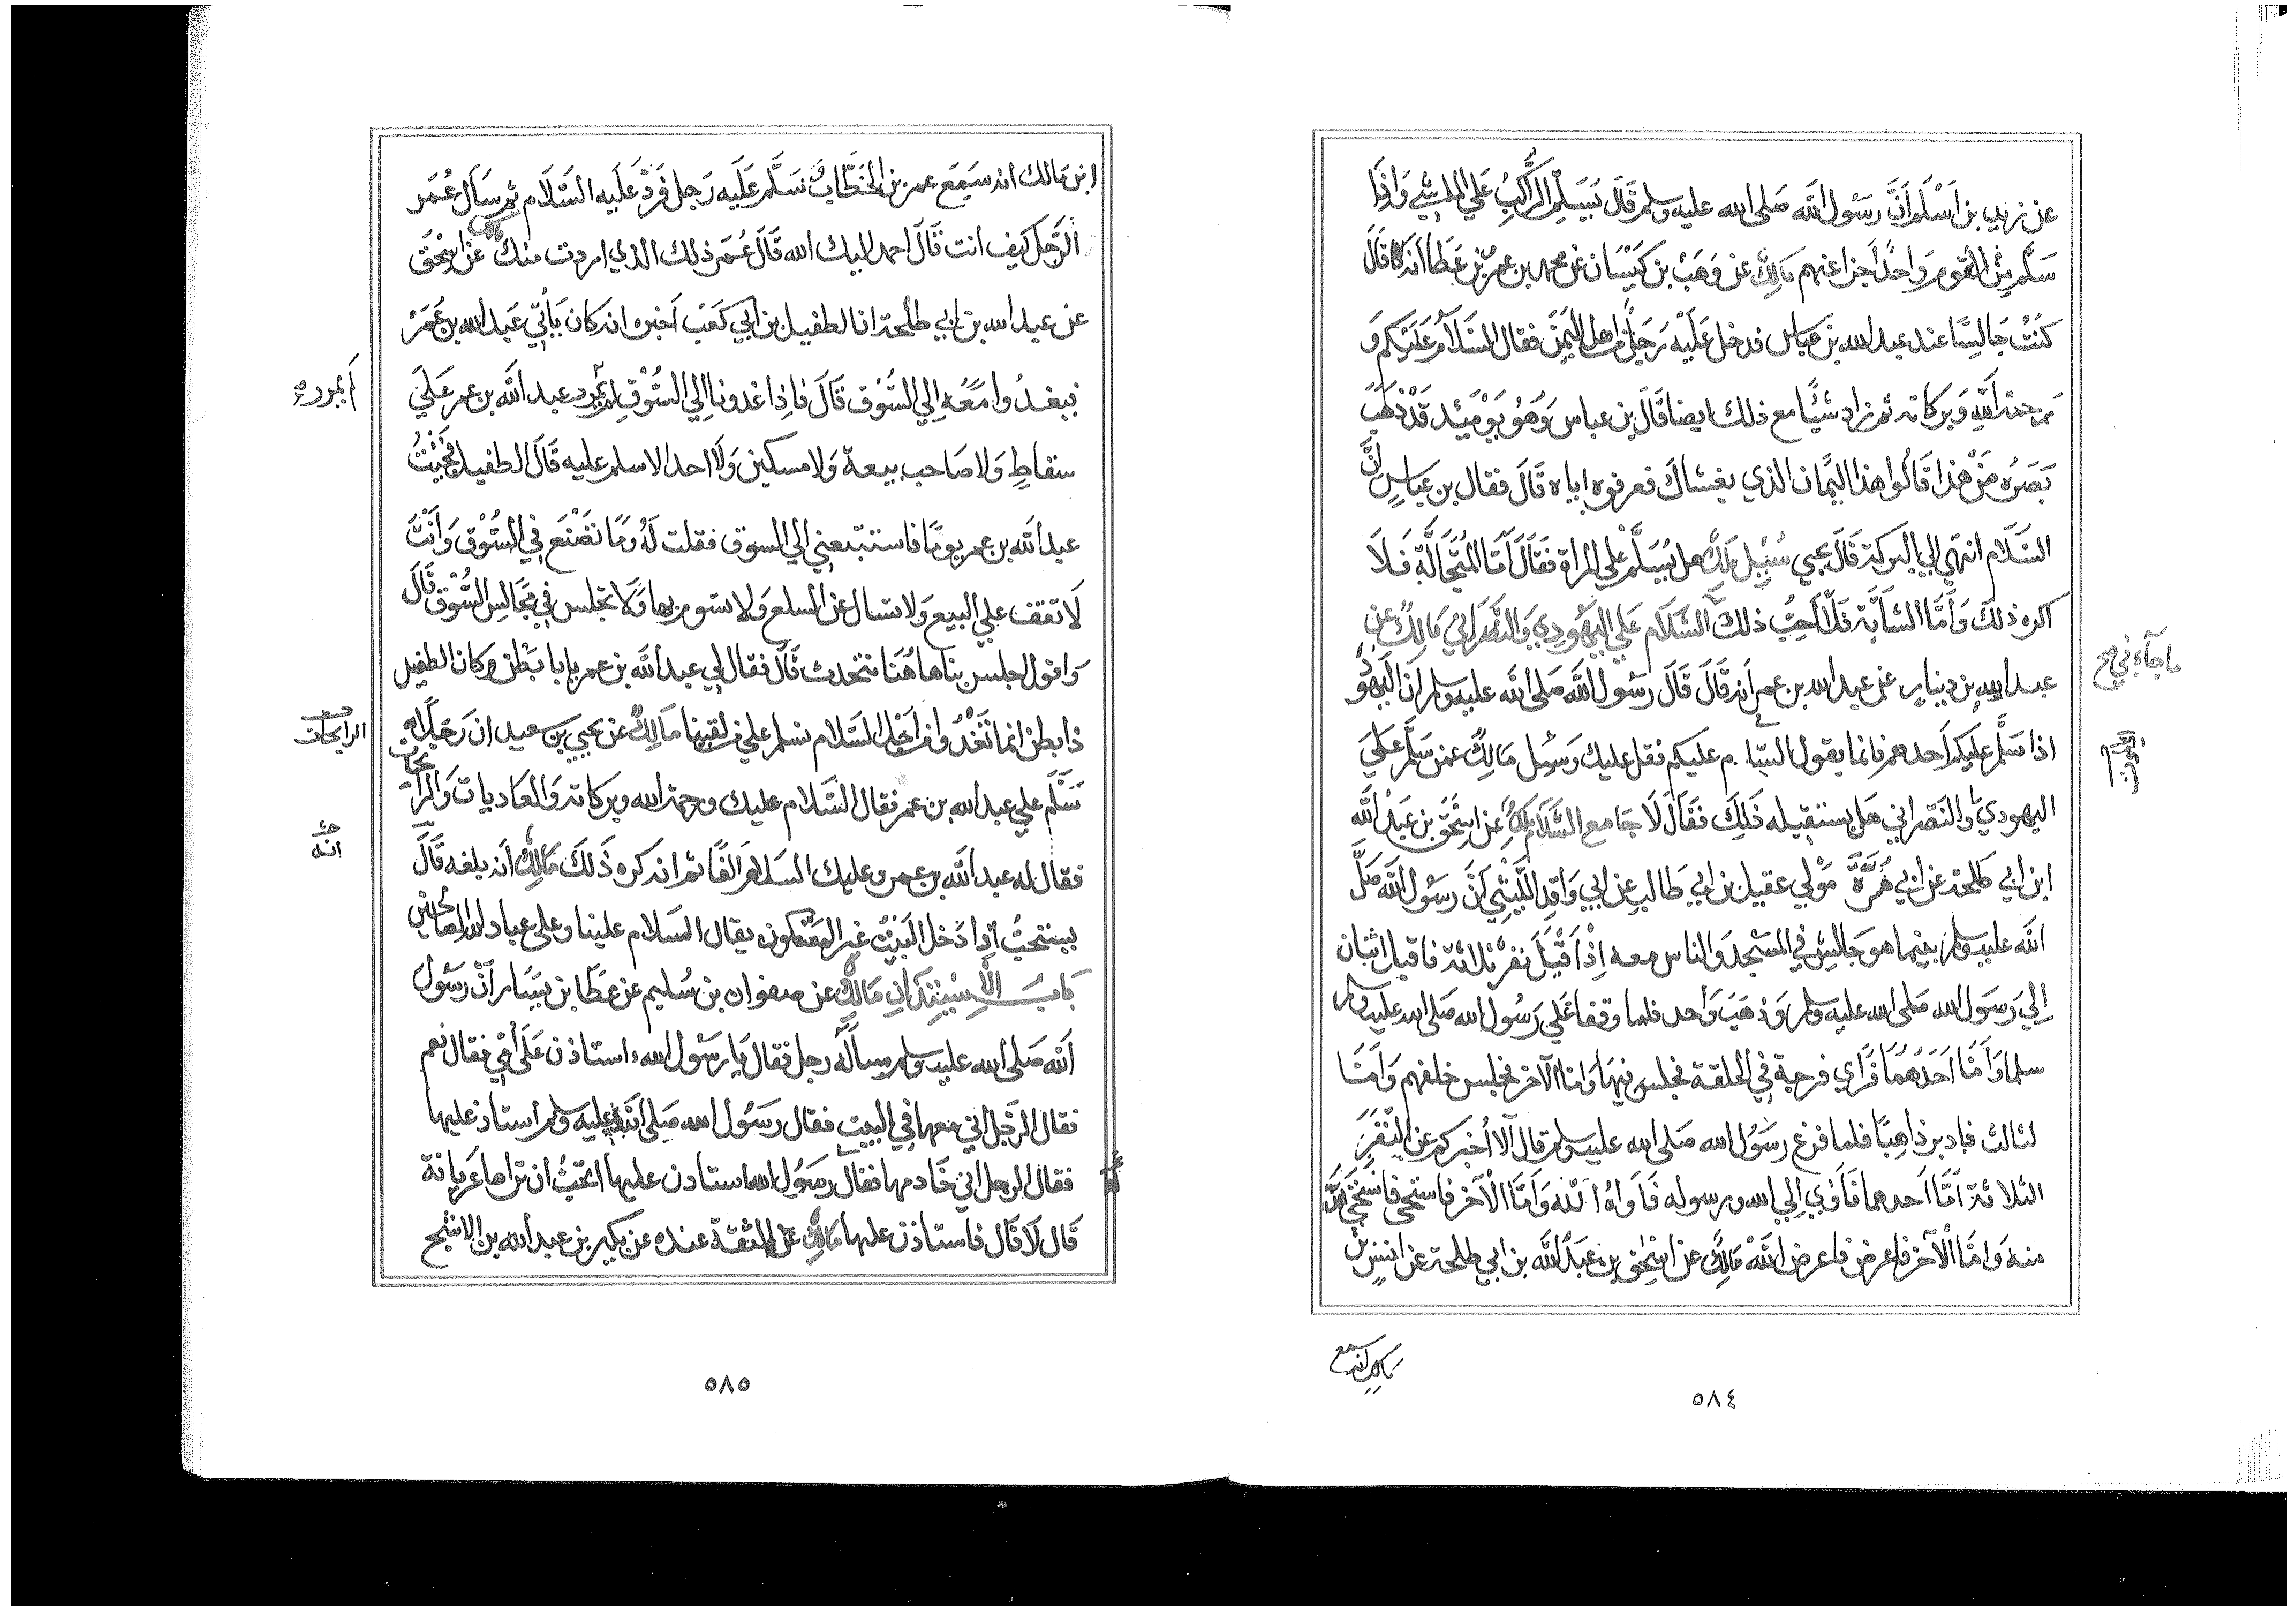 عن زيد بن اسلم ان رسول الله صلى الله عليه وسلم قال يسلم الراكب علي الماشي واذا
سلم من القوم واحدا اجزا عنهم مالك عن وهب بن كيسان عن محمد بن عمرو بن عطا انه قال
كنت جالسا عند عبد الله بن عباس فدخل عليه رجل من اهل اليمن فقال السلام عليكم و
رحمة الله وبركاته ثم زاد شيئا مع ذلك ايضا قال بن عباس وهو يومئد قد ذهب
بصره من هذا قالوا هذا اليمان الذي يغشاك فعرفوه اياه قال فقال بن عباس ان
السلام انتهي الي البركة قال يحيي سئل مالك هل يسلم علي المراة فقال اما المتجالة فلا
اكره ذلك واما الشابة فلا احب ذلك السلام علي اليهودي والنصراني مالك عن
ما جاء في صح
عبد الله بن دينار عن عبد الله بن عمر انه قال قال رسول الله صلى الله عليه وسلم ان اليهود
اذا سلم عليكم احدهم فانما يقول السام عليكم فقل عليك وسئل مالك عمن سلم علي
اليهودي والنصراني هل يستقيله ذلك فقال لا جامع السلام مالك عن اسحق بن عبد الله
ابن ابي طلحة عن ابي مرة مولي عقيل بن ابي طالب عن ابي واقد الليثي ان رسول الله صلى
الله عليه وسلم بينما هو جالس في المسجد والناس معه اذ اقبل نفر ثلاثة فاقبل اثنان
الي رسول الله صلى الله عليه وسلم وذهب واحد فلما وقفا علي رسول الله صلى الله عليه وسلم
سلما واما احدهما فراي فرجة في الحلقة فجلس فيها واما الآخر فجلس خلفهم واما
لثالث فادبر ذاهبا فلما فرغ رسول الله صلى الله عليه وسلم قال الا اخبركم عن النفر
الثلاثة اما احدهما فاوي الي الله ورسوله فاواه الله واما الآخر فاستحى فاستحى الله
منه واما الآخر فاعرض فاعرض الله مالك عن اسحق بن عبد الله بن ابي طلحة عن انس بن
مالك انه سمع
٥٨٤
ابن مالك انه سمع عمر بن الخطاب سلم عليه رجل فرد عليه السلام ثم سال عمر
الرجل كيف انت قال احمد اليك الله قال عمر ذلك الذي اردت منك مالك عن اسحق
عن عبد الله بن ابي طلحة ان الطفيل بن ابي كعب اخبره انه كان ياتي عبد الله بن عمر
فيغدوا معه الي السوق قال فاذا غدونا الي السوق لم يمرر عبد الله بن عمر علي
لم يمرر
سقاط ولا صاحب بيعة ولا مسكين ولا احد الا سلم عليه قال الطفيل فجئت
عبد الله بن عمر يوما فاستتبعني الي السوق فقلت له وما تصنع في السوق وانت
لا تقف علي البيع ولا تسال عن السلع ولا تسوم بها ولا تجلس في مجالس السوق قال
واقول اجلس بنا هاهنا نتحدث قال فقال لي عبد الله بن عمر يا با بطن وكان الطفيل
ذا بطن انما نغدوا من اجل السلام نسلم علي من لقينا مالك عن يحيي بن سعيد ان رجلا
سلم علي عبد الله بن عمر فقال السلام عليك ورحمة الله وبركاته والغاديات والرائحات
الرايحات
فقال له عبد الله بن عمر وعليك السلام الفا ثم انه كره ذلك مالك انه بلغه قال
انه
يستحب اذا دخل البيت غير المسكون يقال السلام علينا وعلى عباد الله الصالحين
باب الاستيذان مالك عن صفوان بن سليم عن عطا بن يسار ان رسول
الله صلى الله عليه وسلم ساله رجل فقال يا رسول الله استاذن على امي فقال نعم
فقال الرجل اني معها في البيت فقال رسول الله صلى الله عليه وسلم استاذن عليها
فقال الرجل اني خادمها فقال رسول الله استاذن عليها اتحب ان تراها عريانة
قال لا قال فاستاذن عليها مالك عن الثقة عنده عن بكير بن عبد الله بن الاشج
٥٨٥